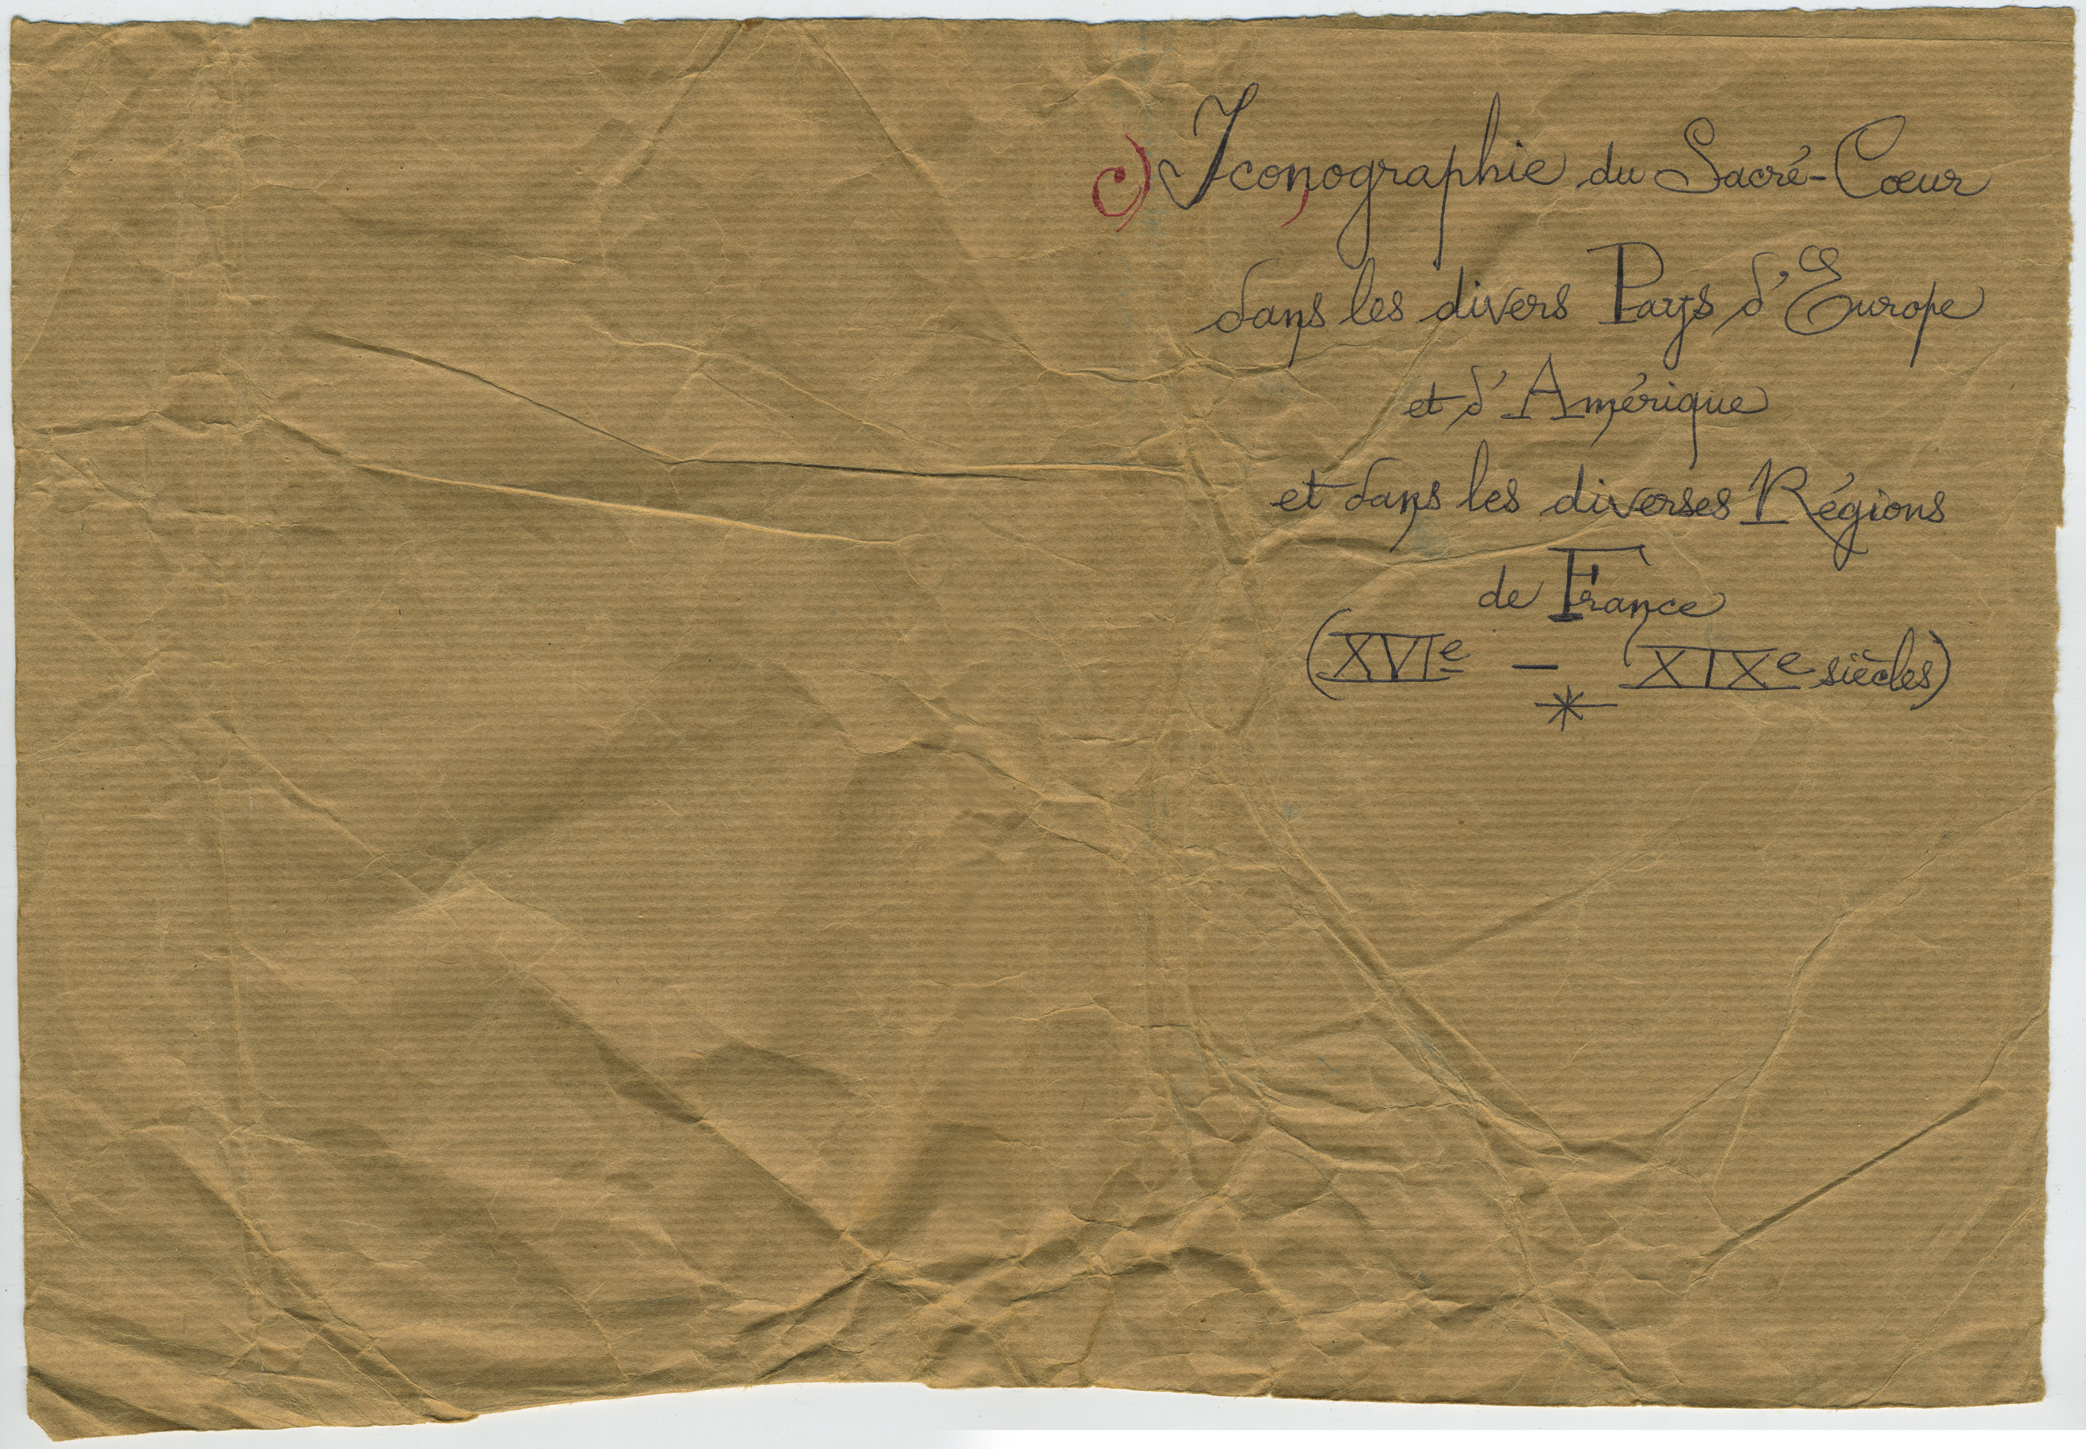 c) Iconographie du Sacré-Cœur
dans les divers Pays d'Europe
et d'Amérique
et dans les diverses Régions
de France
(XVIe - XIXe siècles)